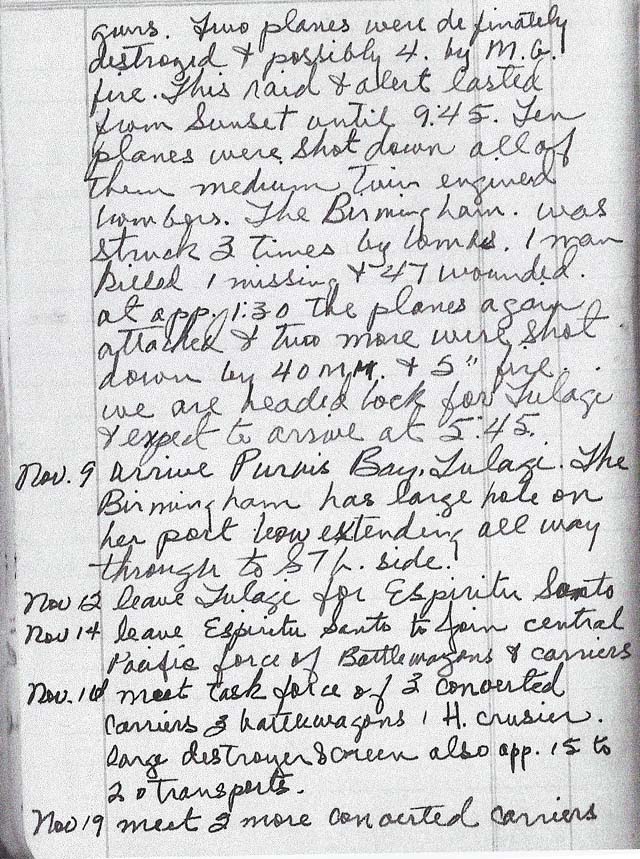 guns. Two planes were definately
destroyed & possibly 4. by M.G.
fire. This raid & alert lasted
from Sunset until 9:45. Ten
planes were shot down all of
them medium twin engined
bombers. The Birmingham. was
struck 3 times by bombs. 1 man
killed 1 missing & 47 wounded.
at app. 1:30 the planes again
attacked & two more were shot
down by 40 MM. & 5" fire.
we are headed back for Tulagi
& expect to arrive at 5:45.
Nov. 9 arrive Purvis Bay, Tulagi. The
Birmingham has large hole on
her port bow extending all way
through to ST b. side.
Nov 12 leave Tulagi for Espiritu Santo
Nov 14 leave Espiritu Santo to join central
Pacific force of Battlewagons & carriers
Nov. meet task force of 3 converted
carriers 3 battlewagons 1 H. crusier.
large destroyer screen also app. 15 to
20 transports.
Nov 19 meet 3 more converted carriers